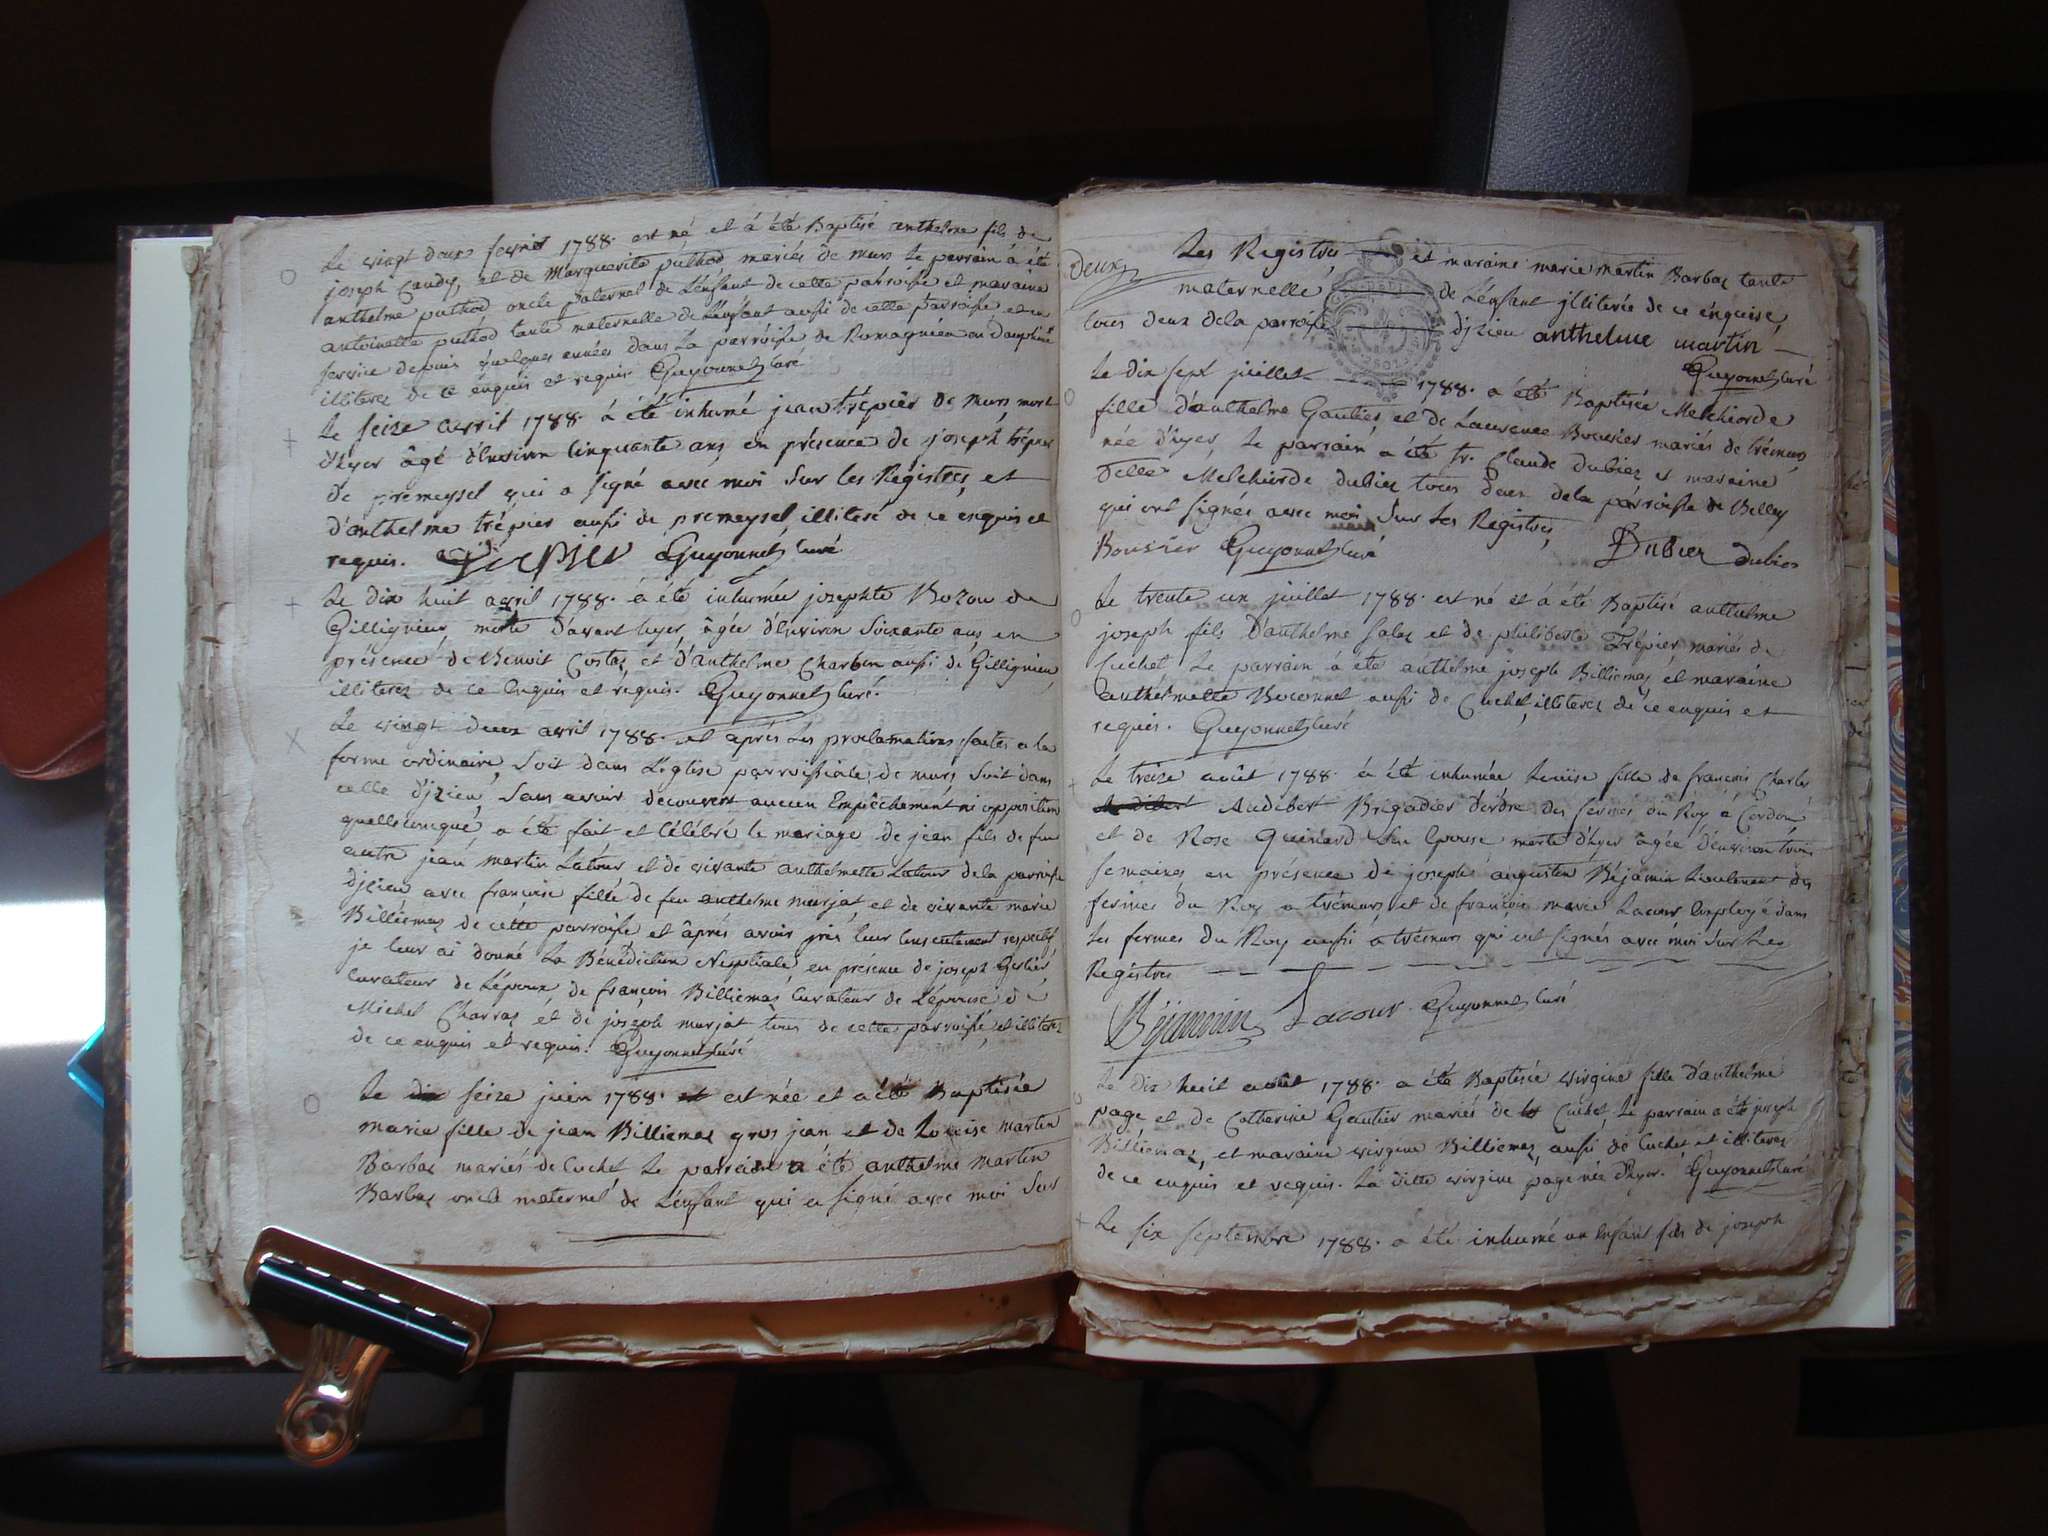 Le vingt deux fevrier 1788. est né et à été Baptisé anthelme fils de
joseph Caudy, et de Marguerite puthod mariés de murs Le parrain à été
anthelme puthod oncle paternel de L'enfant de cette parroisse et maraine
antoinette puthod tante maternelle de L'enfant aussi de cette parroisse et en
service depuis quelques années dans La parroisse de Romagnieu en Dauphiné
illiterés de ce enquis et requis. Guyonnet Curé
Le seize avril 1788. à été inhumé jean trépier de Murs mort
d'hyer âgé d'Environ Cinquante ans en présence de joseph trépier
de premeysel qui a signé avec moi Sur les Régistres, et
d'anthelme trépier aussi de premeysel illiteré de ce enquis et
requis. Trepier Guyonnet Curé
Le dix huit avril 1788. à été inhumée josephte Bozon de
Gillignieu, morte d'avant hyer, âgée d'Environ Soixante ans en
présence de Benoit Costaz et d'anthelme Charbon aussi de Gillignieu
illiterez de ce Enquis et requis. Guyonnet Curé.
Le vingt deux avril 1788. et après Les proclamations faites a la
forme ordinaire, Soit dans L'église parroissiale de murs Soit dans
celle d'jzieu, Sans avoir decouvert aucun Empêchement ni opposition
quelleconque, a été fait et Célébré le mariage de jean fils de feu
autre jean martin Latour et de vivante anthelmette Latour de la parroisse
d'jzieu avec francoise fille de feu anthelme murjat et de vivante marie
Billiémaz de cette parroisse et après avoir pris leur Consentement respectif
je leur ai donné La Bénédiction Nuptiale en présence de joseph
Curateur de L'époux de françois Billiemaz Curateur de L'épouse de
Michel Charraz et de joseph murjat tous de cette parroisse et illiterez
de ce enquis et requis. Guyonnet Curé
Le seize juin 1788. est née et a été Baptisée
marie fille de jean Billiemaz gros jean et de Louise martin
Barbaz mariés de Cuchet Le parrain a été anthelme martin
Barbaz oncle maternel de L'enfant qui a signé avec moi Sur
deux
Les Registres et maraine marie martin Barbaz tante
maternelle de L'enfant jlliterée de ce énquise,
tous deux de la parroisse d'jzieu anthelme martin
Guyonnet Curé
Le dix sept juillet 1788. a été Baptisée Melchiorde
fille d'anthelme Gautier et de Laurence Boursier mariés de trémurs
née d'hyer, Le parrain a été sr. Claude Dubiez et maraine
Delle Melchiorde Dubiez tous deux de la parroisse de Belley
qui ont signés avec moi Sur Les Registres,
Boursier Guyonnet Curé Dubier dubier
Le trente un juillet 1788. est né et à été Baptisé anthelme
joseph fils D'anthelme Salaz et de philiberte Trépier mariés de
Cuchet Le parrain à été anthelme joseph Billiemaz et maraine
anthelmette Boconnet aussi de Cuchet, illiterez de ce enquis et
requis. Guyonnet Curé
Le treize août 1788. à été inhumée Louise fille de françois Charles
Audibert Brigadier d'ordre des fermes du Roy à Cordon
et de Rose Guinard Son Epouse morte d'hyer âgée d'Environ trois
semaines en présence de joseph augustin Béjamin Lieutenant des
fermes du Roy a trémurs et de françois marie Lacour Employé dans
Les fermes du Roy aussi a trémurs qui ont signés avec moi Sur Les
Registres
Béjammin Lacour Guyonnet Curé
Le dix huit août 1788. a été Baptisée virgine fille d'anthelme
page et de Catherine Gautier mariés de Cuchet Le parrain a été joseph
Billiemaz, et maraine virgine Billiemaz, aussi de Cuchet et illiterez
de ce enquis et requis. La ditte virgine page née d'hyer. Guyonnet Curé
Le six septembre 1788. a été inhumé un Enfant fils de joseph